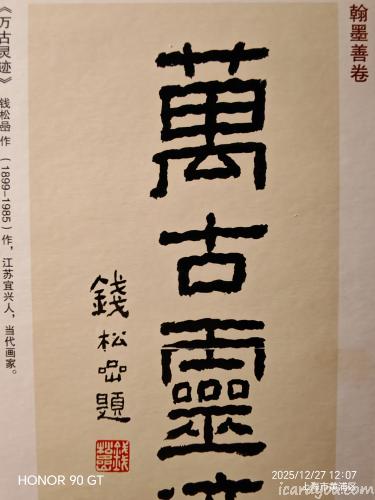 翰墨善卷
萬古靈
錢松喦題
《万古灵迹》
钱松喦 作 (1899-1985)作，江苏宜兴人，当代画家。
HONOR 90 GT
2025/12/27 12:07
上海市黄浦区